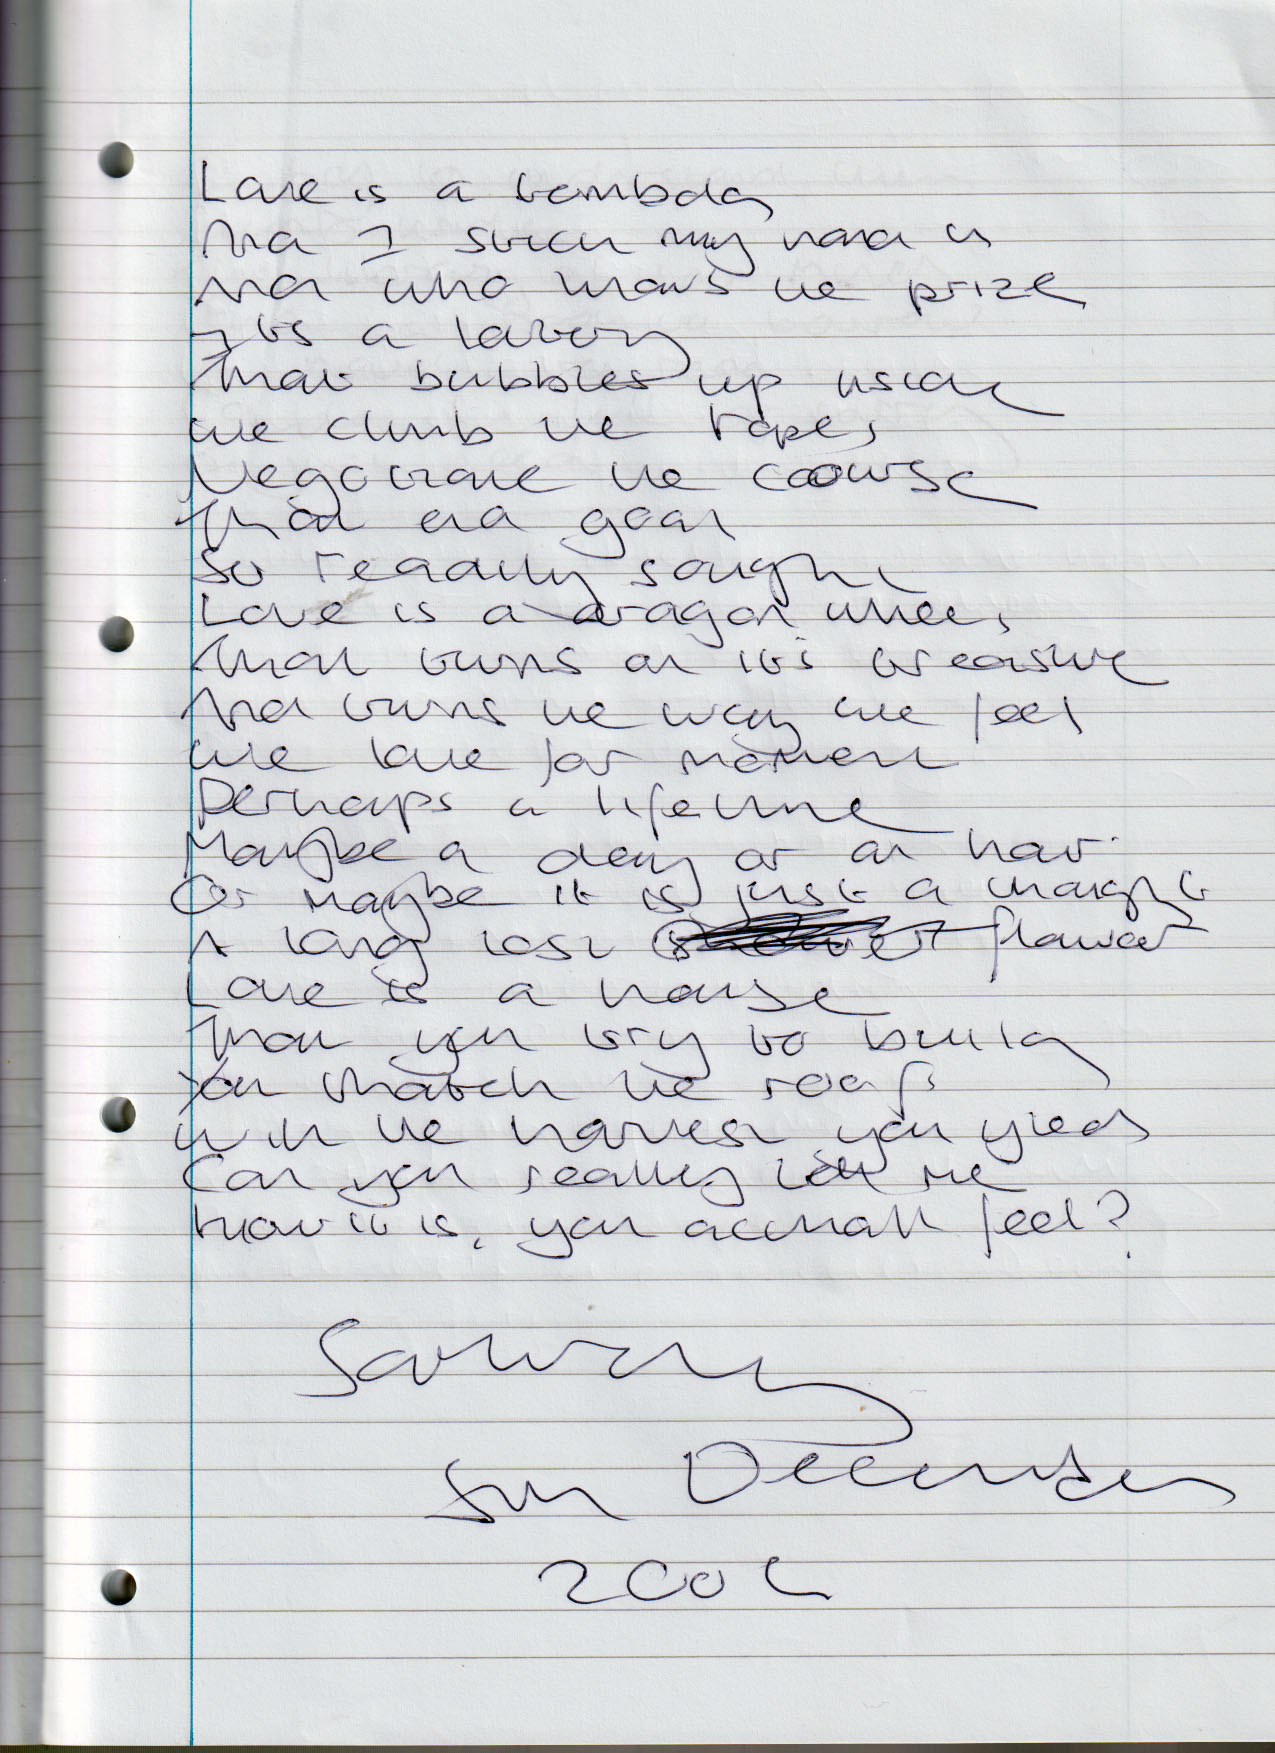 Love is a tombola
And I stick my hand in
And who knows the prize
Its a lottery
That bubbles up inside
We climb the ropes
Negotiate the course
That end goal
So readily sought
Love is a dragon wheel
That turns on it's treasure
And turns the way we feel
We love for moment
Perhaps a lifetime
Maybe a day or an hour
Or maybe it is just a thought
A long lost flower
Love is a house
That you try to build
You thatch the roof
With the harvest you yield
Can you really tell me
How it is, you actually feel?
Saturday
December